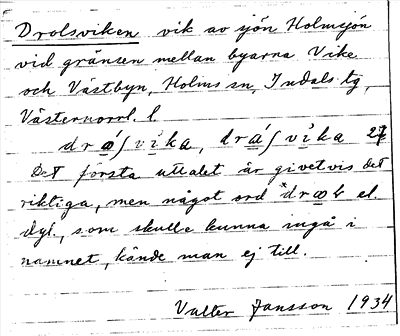 Drolsviken vik av sjön Holmsjön
vid gränsen mellan byarna Vike
och Västbyn, Holms sn, Indals tg,
Västernorrl. l.
Det första uttalet är givetvis det
riktiga, men något ord el.
dyl., som skulle kunna ingå i
namnet, kände man ej till.
Valter Jansson 1934